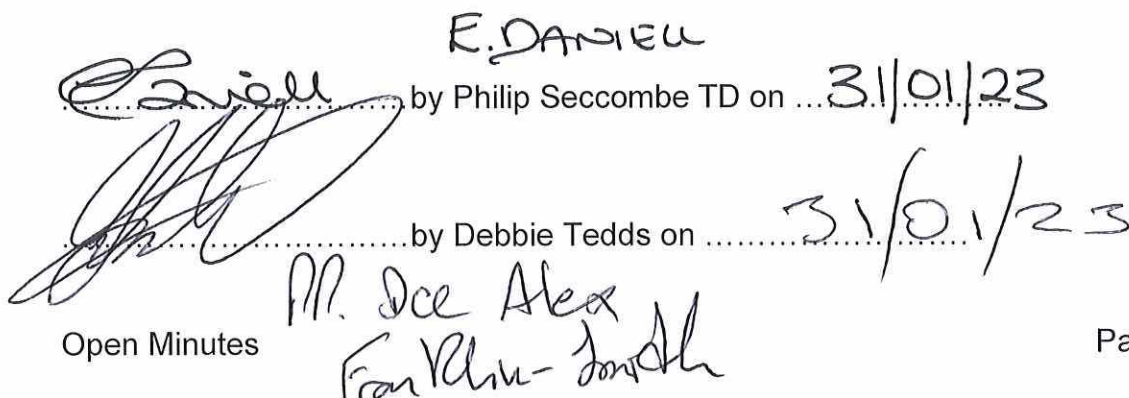 E. DANIELL
EDaniell by Philip Seccombe TD on ...31/01/23
by Debbie Tedds on ...31/01/23
PP. DCC Alex
Open Minutes Franklin-Smith Pa